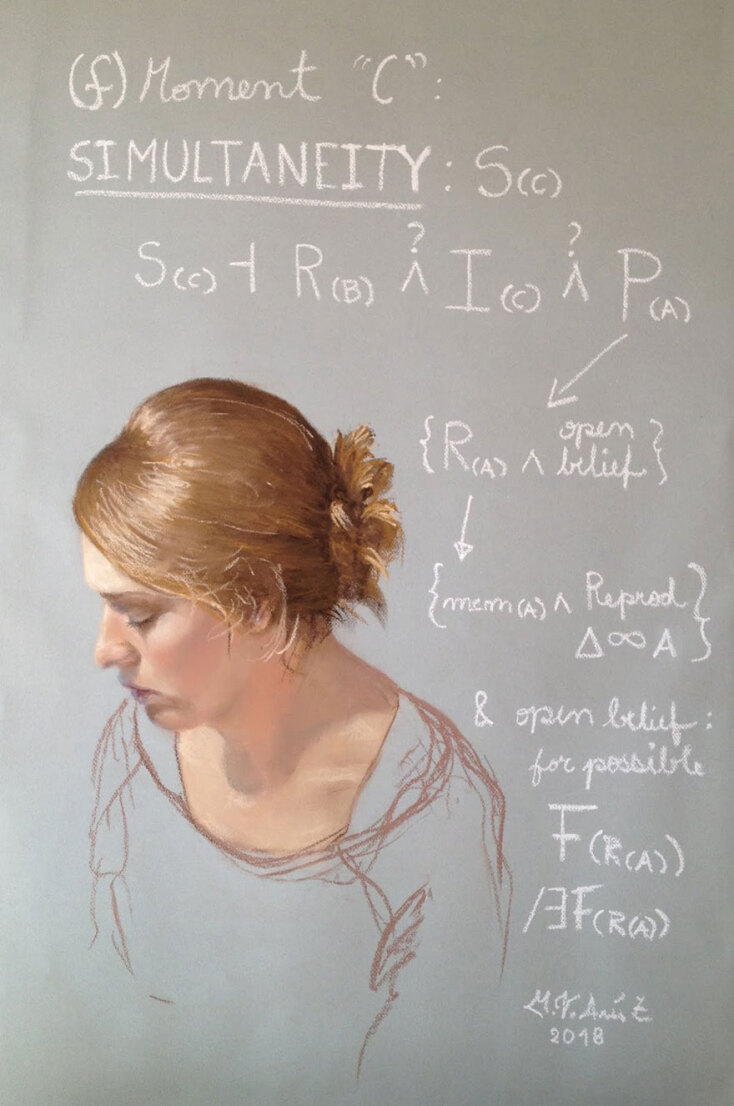 (f) Moment "C":
SIMULTANEITY: S(C)
S(C) ⊣ R(B) ?∧ I(C) ?∧ P(A)
{R(A) ∧ open belief}
{mem(A) ∧ Reprod
Δ∞A}
& open belief:
for possible
F(R(A))
/∃F(R(A))
M.V.
2018